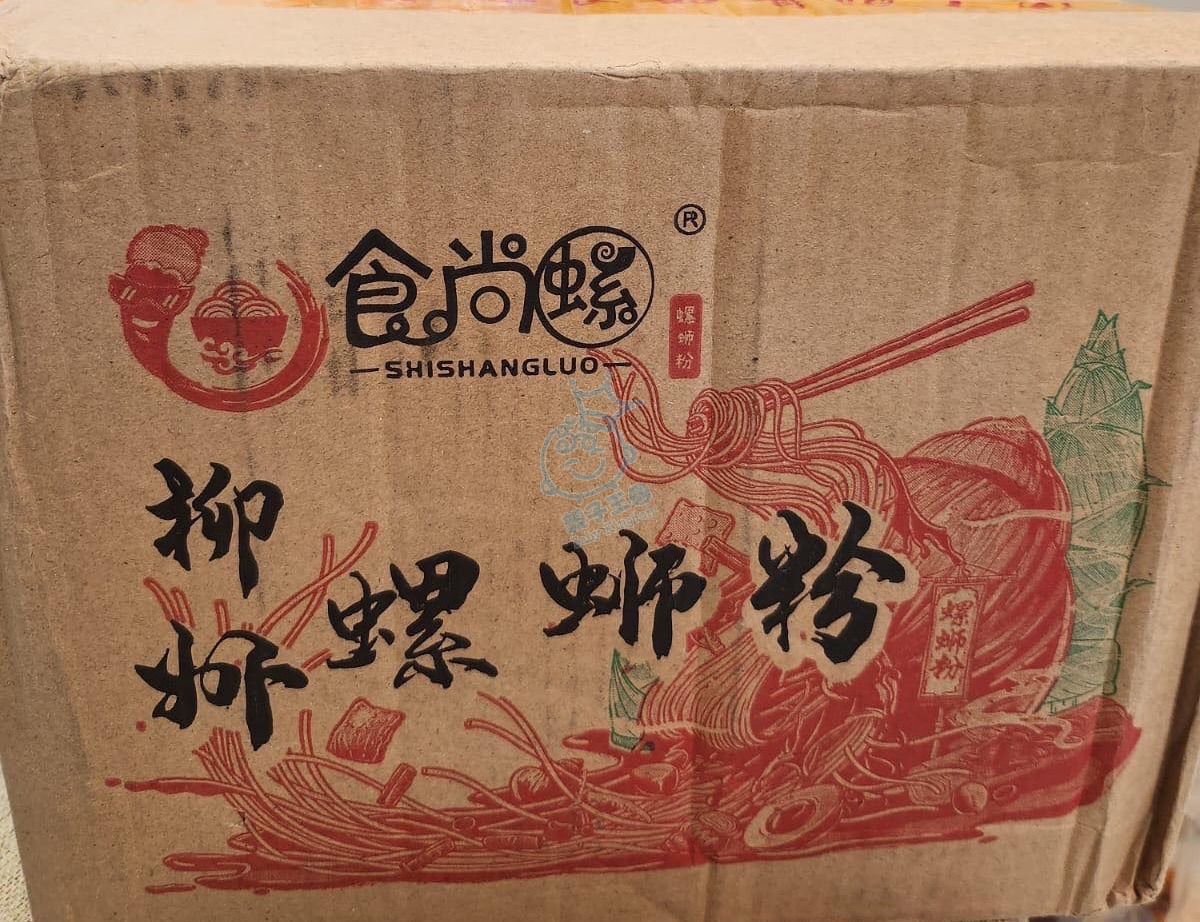 食尚螺
®
SHISHANGLUO
螺蛳粉
柳州螺蛳粉
螺蛳粉